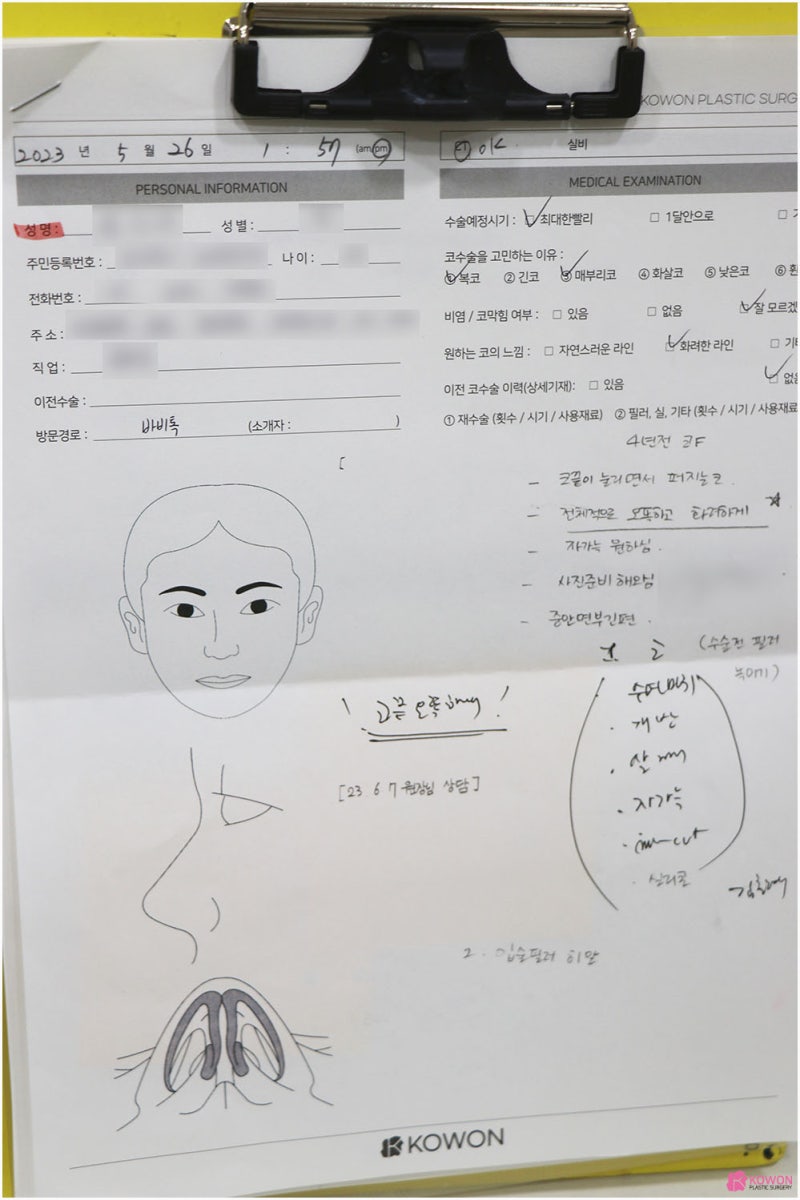 KOWON PLASTIC SURG
2023 년 5 월 26 일 1 : 57 (am pm)
CT OK 실비
PERSONAL INFORMATION
MEDICAL EXAMINATION
성명 : 성별 :
주민등록번호 : 나이 :
전화번호 :
주소 :
직업 :
이전수술 :
방문경로 : 바비톡 (소개자 : )
수술예정시기 : □ 최대한빨리 □ 1달안으로 □
코수술을 고민하는 이유 :
① 복코 ② 긴코 ③ 매부리코 ④ 화살코 ⑤ 낮은코 ⑥
비염 / 코막힘 여부 : □ 있음 □ 없음 □ 잘 모르겠
원하는 코의 느낌 : □ 자연스러운 라인 □ 화려한 라인 □ 기타
이전 코수술 이력(상세기재) : □ 있음 □ 없음
① 재수술 (횟수 / 시기 / 사용재료) ② 필러, 실, 기타 (횟수 / 시기 / 사용재료
4년전 코F
- 코끝이 눌리면서 퍼지는코.
- 전체적으로 오똑하고 화려하게
- 자가늑 원하심.
- 사진준비 해오심
- 중안면부긴편.
(수술전 필러
녹이기)
! 코끝 오똑하게 !
· 자가늑
· 실리콘
[23 6 7 원장님 상담]
2. 입술필러 희망
KOWON
KOWON
PLASTIC SURGERY